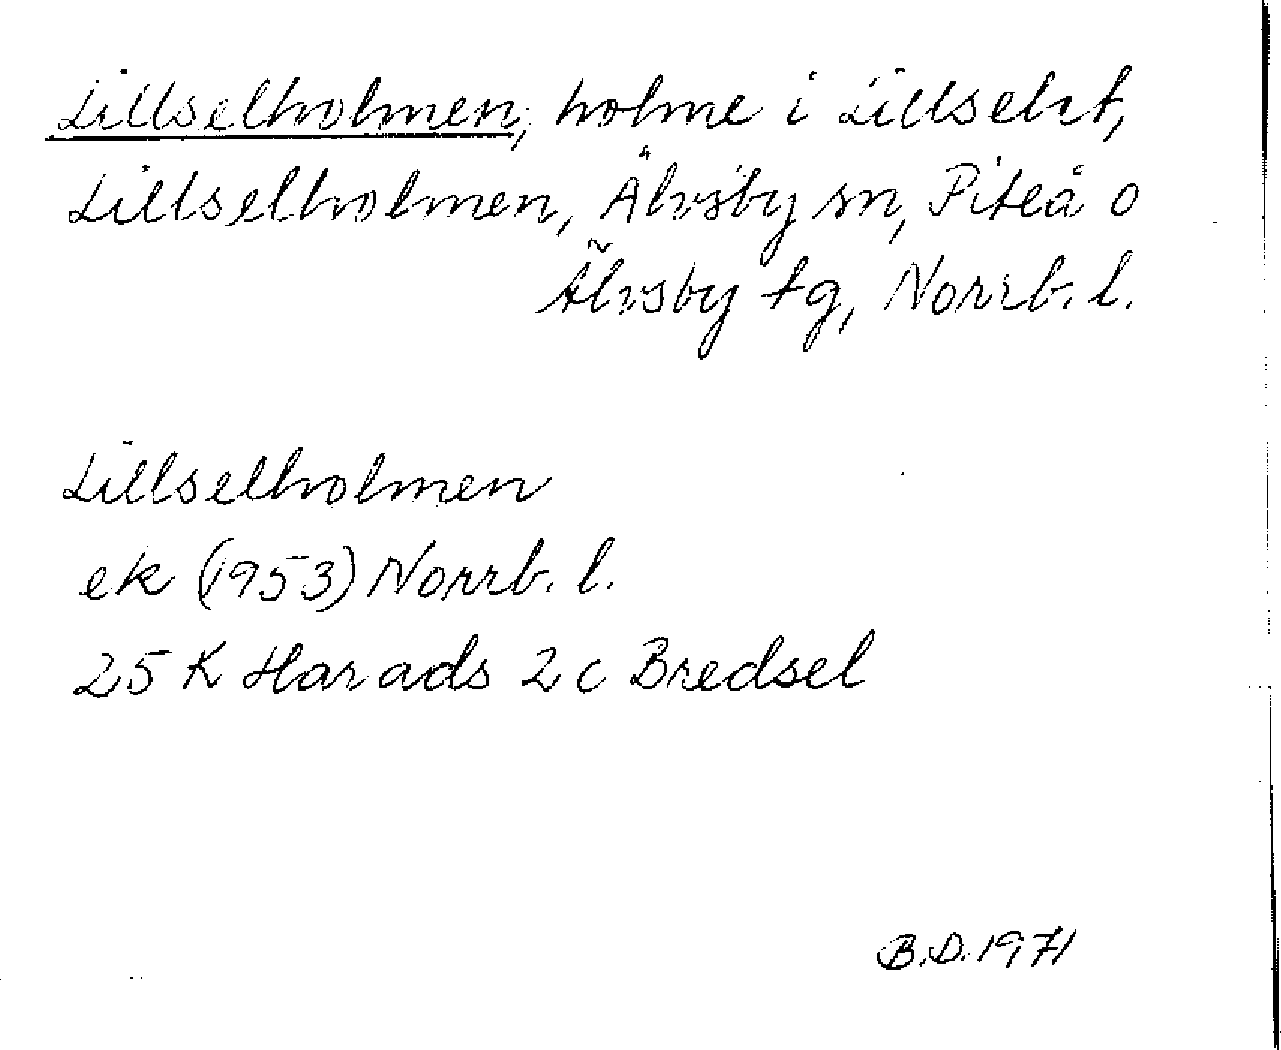 Lillselholmen, holme i Lillselet,
Lillselholmen, Älvsby sn, Piteå o
Älvsby tg, Norrb. l.
Lillselholmen
ek (1953) Norrb. l.
25 K Harads 2 c Bredsel
B.D. 1971